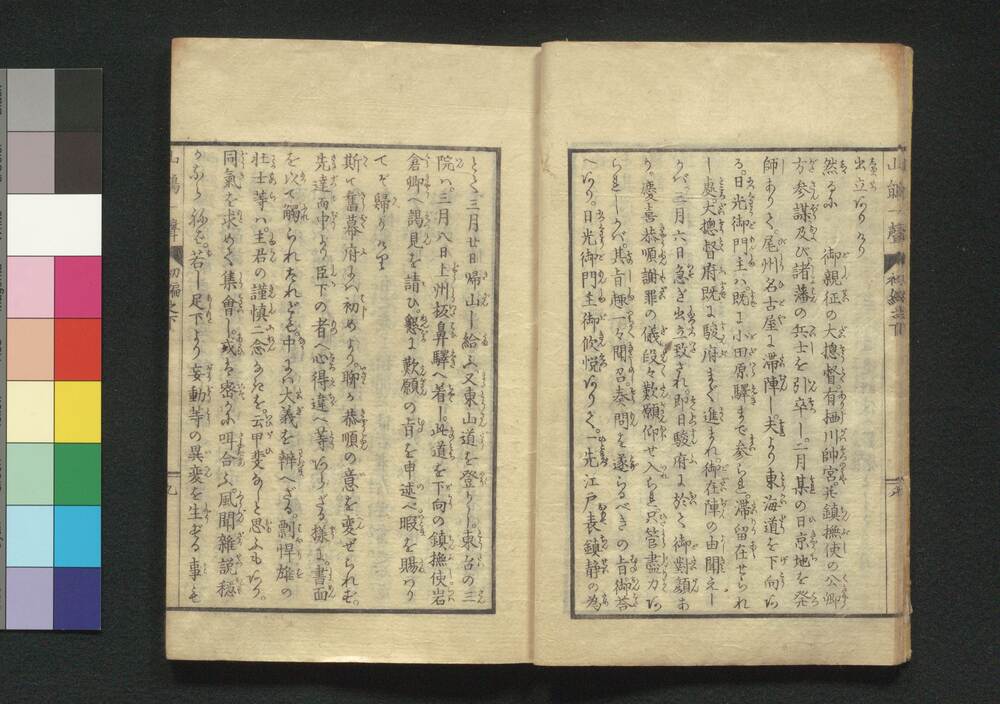 出立ありけり
然るに 御親征の大摠督有栖川帥宮并鎮撫使の公卿
方参謀及び諸藩の兵士を引卒し二月某の日京地を発
師ありて尾州名古屋に滞陣し夫より東海道を下向あ
る日光御門主ハ既に小田原驛まで参られ滞留在せられ
し處大摠督府既に駿府まで進まれ御在陣の由聞えし
かバ三月六日急ぎ出致され即日駿府に於て御對顔あ
り慶喜恭順謝罪の儀段々歎願仰せ入られ只管盡力あ
られしかバ其旨趣一々聞召奏問を遂らるべきの旨御荅
へあり日光御門主御欣悦ありて一先江戸表鎮静の為
とて三月廿日帰山し給ふ又東山道を登りし東台の三
院ハ三月八日上州板鼻驛へ着し此道を下向の鎮撫使岩
倉卿へ謁見を請ひ懇に歎願の旨を申述べ暇を賜わり
てぞ帰りけり
斯て舊幕府にハ初めより聊か恭順の意を変ぜられず
先達而中より臣下の者へ心得違へ等あらざる様に書面
を以て觸られたれども中にハ大義を辨へざる剽悍雄の
壮士等ハ主君の謹慎二念なきを云甲斐なしと思ふもあり
同氣を求めて集會し或ハ密かに呼合ふ風聞雜説穏
かならねバ若し足下より妄動等の異変を生ずる事も
初編之下
九